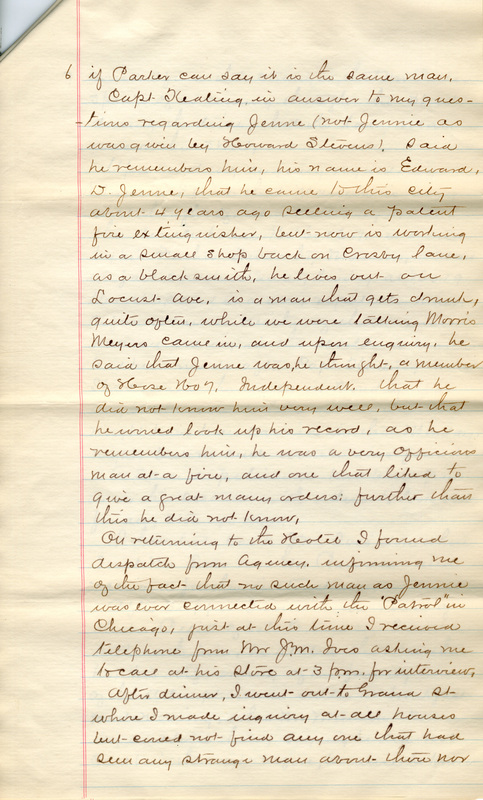 6 if Parker can say it is the same man.
Capt. Keating, in answer to my ques-
-tions regarding Jenne (not Jennie as
was given by Howard Stevens). Said
he remembers him, his name is Edward,
D. Jenne, that he came to this city
about 4 years ago selling a patent
fire extinguisher, but now is working
in a small shop back on Crosby lane,
as a blacksmith, he lives out on
Locust Ave, is a man that gets drunk,
quite often, while we were talking Morris
Meyers came in, and upon enquiry, he
said that Jenne was, he thought, a member
of Hose No 7, Independent. that he
did not know him very well, but that
he would look up his record, as he
remembers him, he was a very officious
man at a fire, and one that liked to
give a great many orders; further than
this he did not know,
On returning to the Hotel I found
dispatch from Agency. informing me
of the fact that no such man as Jennie
was ever connected with the "Patrol" in
Chicago, just at this time I received
telephone from Mr J.M. Ives asking me
to call at his store at 3 p.m. for interview,
After dinner, I went out to Grand St
where I made inquiry at all houses
but could not find any one that had
seen any strange man about there nor